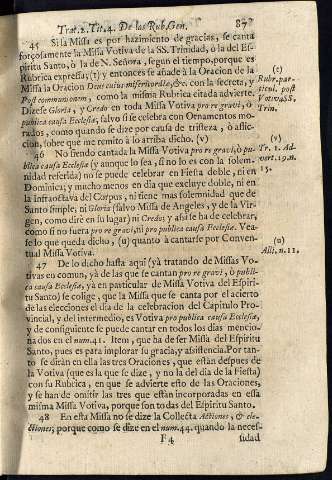 Trat.2. Tit.4. De las Rub. Gen. 87
45 Si la Missa es por hazimiento de gracias, se canta
forçosamente la Missa Votiva de la SS. Trinidad, ò la del Es-
piritu Santo, ò la de N. Señora, segun el tiempo, porque es
Rubrica expressa; (t) y entonces se añade à la Oracion de la
Missa la Oracion Deus cuius misericordiæ, &c. con la secreta, y
Post communionem, como la misma Rubrica citada advierte.
Dizese Gloria, y Credo en toda Missa Votiva pro re gravi, ò
publica causa Ecclesiæ, salvo si se celebra con Ornamentos mo-
rados, como quando se dize por causa de tristeza, ò aflic-
cion, sobre que me remito à lo arriba dicho. (v)
46 No siendo cantada la Missa Votiva pro re gravi, ò pu-
blica causa Ecclesiæ (y aunque lo sea, si no lo es con la solem-
nidad referida) no se puede celebrar en Fiesta doble, ni en
Dominica; y mucho menos en dia que excluye doble, ni en
la Infraoctava del Corpus, ni tiene mas solemnidad que de
Santo simple, ni Gloria (salvo Missa de Angeles, y de la Vir-
gen, como diré en su lugar) ni Credo; y assi se ha de celebrar,
como si no fuera pro re gravi, ni pro publica causa Ecclesiæ. Vea-
se lo que queda dicho, (u) quanto à cantarse por Conven-
tual Missa Votiva.
47 De lo dicho hasta aqui (yà tratando de Missas Vo-
tivas en comun, yà de las que se cantan pro re gravi, ò publi-
ca causa Ecclesiæ, yà en particular de Missa Votiva del Espiri-
tu Santo) se colige, que la Missa que se canta por el acierto
de las elecciones el dia de la celebracion del Capitulo Pro-
vincial, y del intermedio, es Votiva pro publica causa Ecclesiæ,
y de consiguiente se puede cantar en todos los dias mencio-
nados en el num. 41. Item, que ha de ser Missa del Espiritu
Santo, pues es para implorar su gracia, y assistencia. Por tan-
to se diràn en ella las tres Oraciones, que estàn despues de
la Votiva (que es la que se dize, y no la del dia de la Fiesta)
con su Rubrica, en que se advierte esto de las Oraciones,
y se han de omitir las tres que estàn incorporadas en essa
misma Missa Votiva, porque son todas del Espiritu Santo.
48 En esta Missa no se dize la Collecta Actiones, & ele-
ctiones; porque como se dize en el num. 44. quando la neces-
F4 sidad
(t)
Rubr. par-
ticul. post
Votiva SS.
Trin.
(v)
Tr. 2. Ad-
vert. 19. n.
15.
(u)
Alli, n. 11.